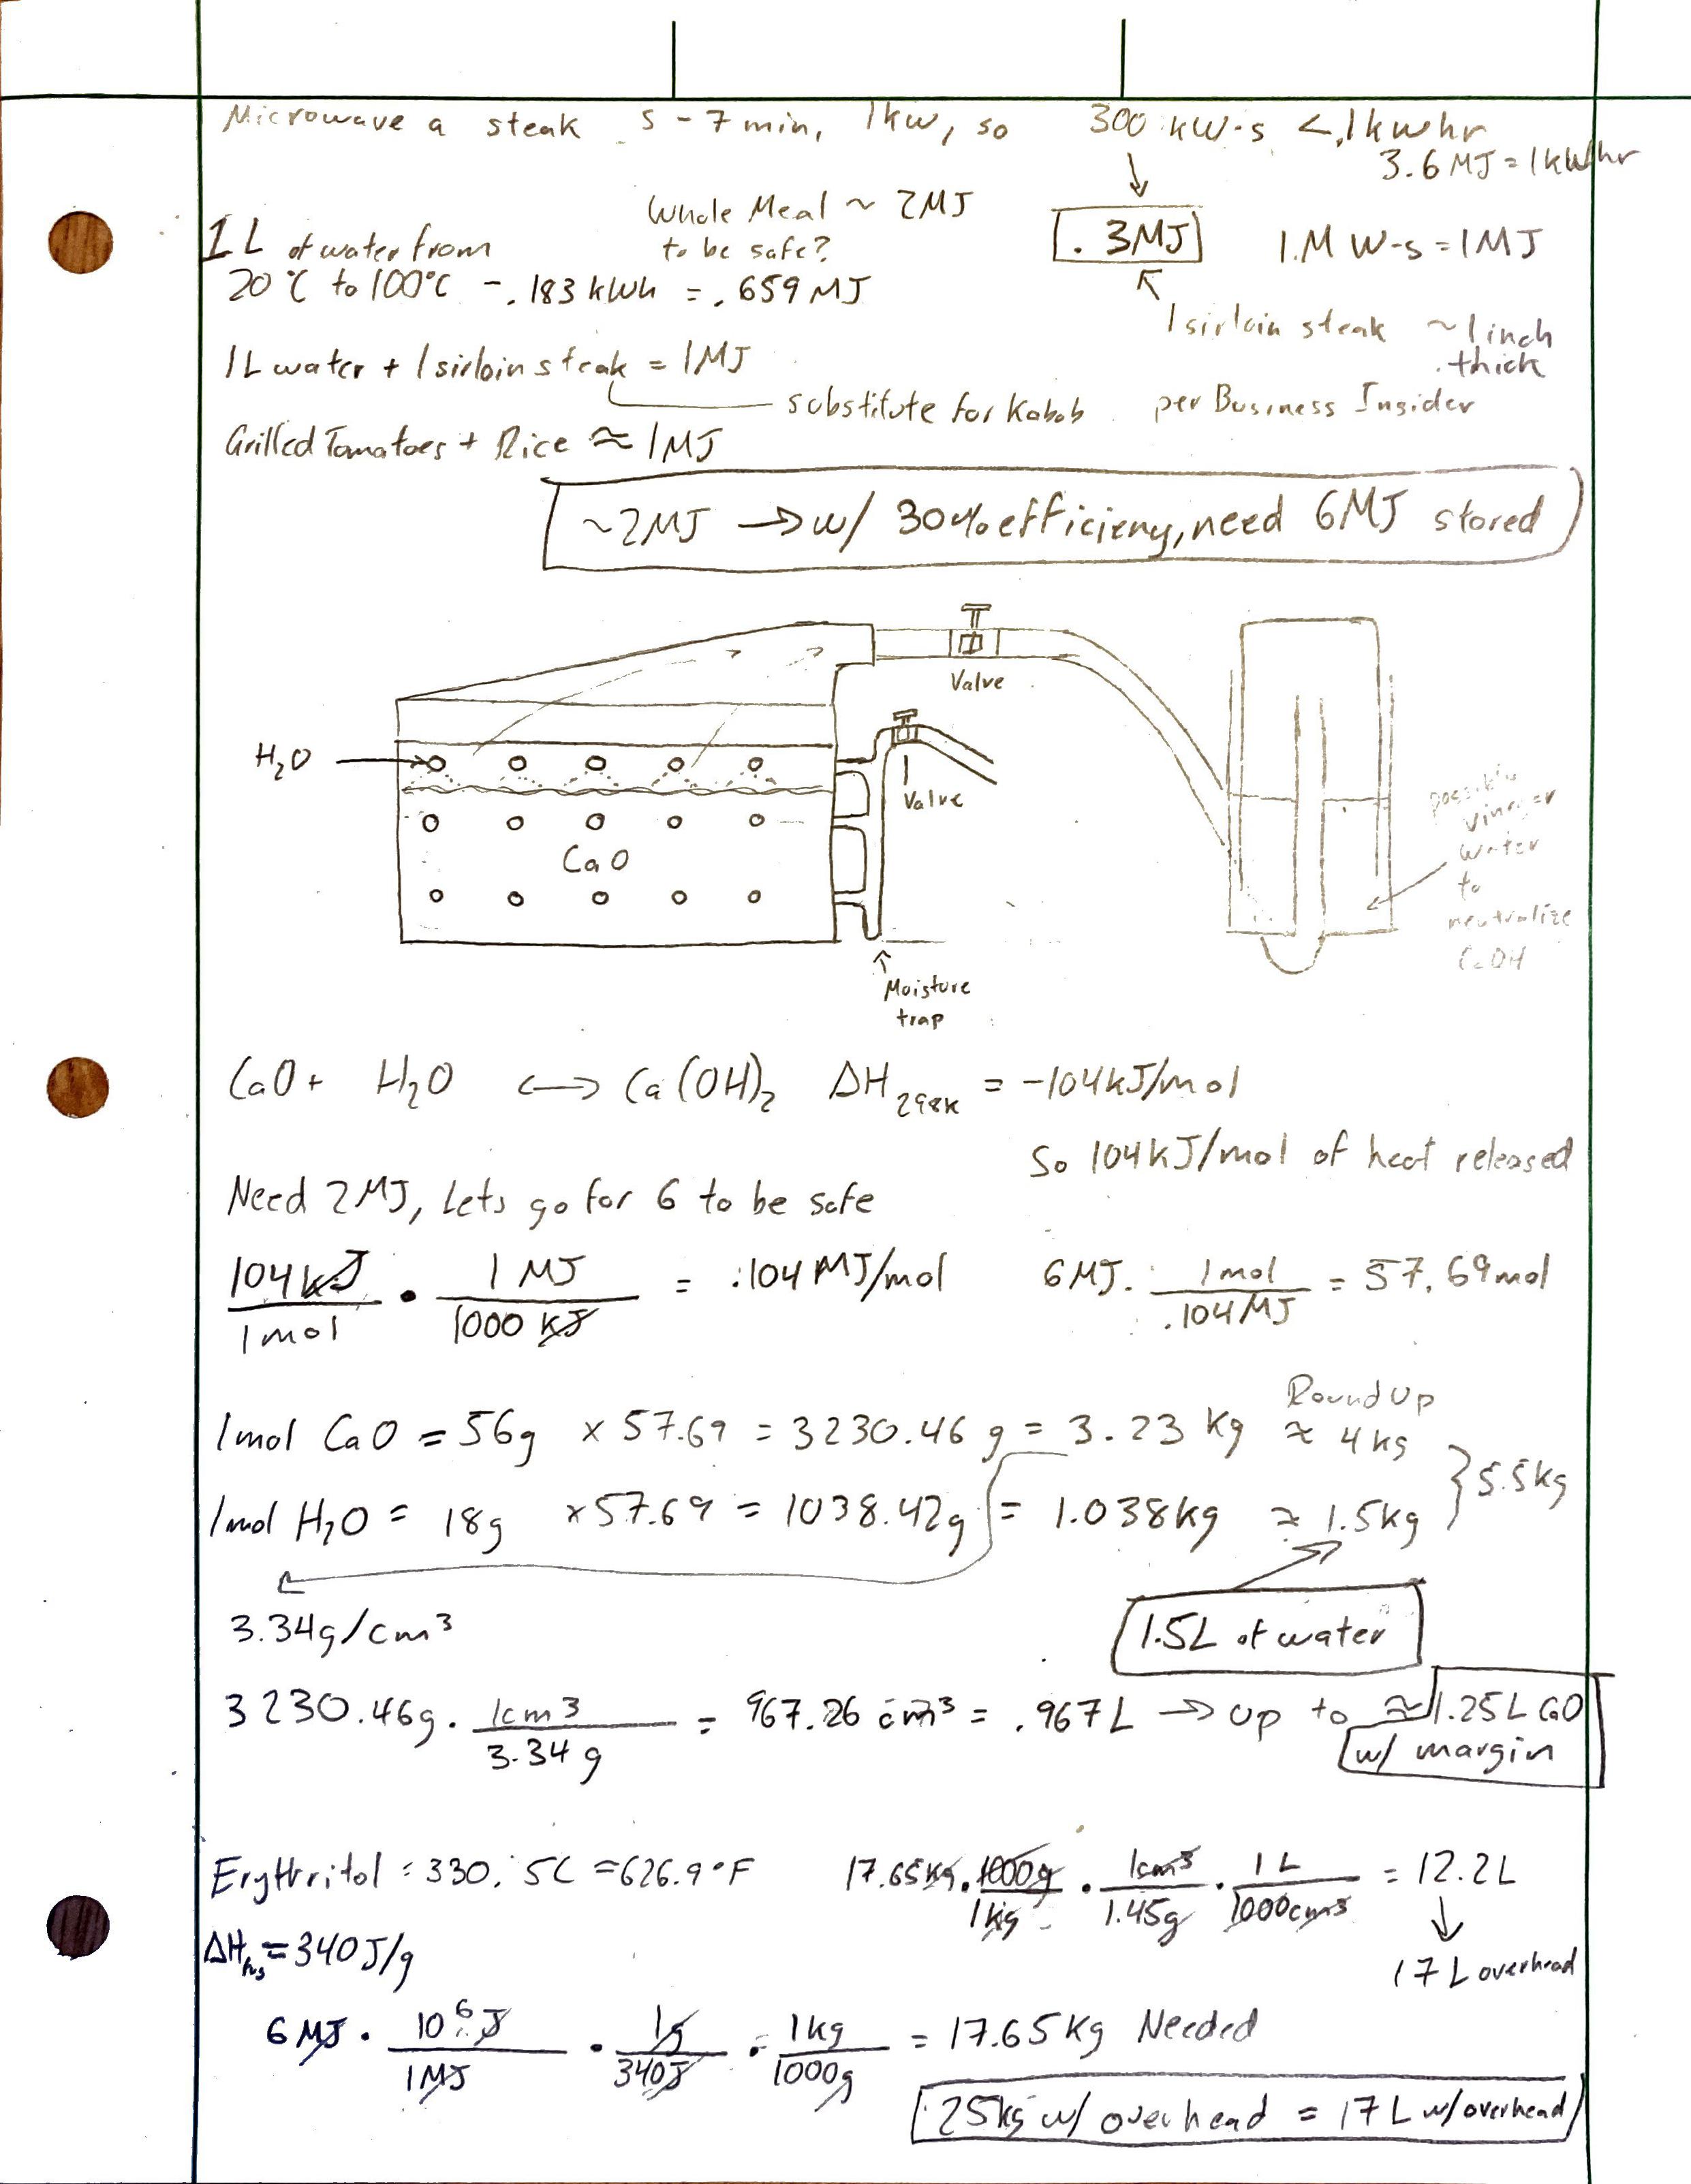 Microwave a steak 5-7min, 1kw, so 300 kW·s <.1kwhr
3.6MJ=1kWhr
Whole Meal ~ 2MJ
to be safe?
.3MJ
1.M W-s=1MJ
1L of water from
20°C to 100°C - .183 kWh = .659MJ
1 sirloin steak ~1inch
thick
per Business Insider
1L water + 1 sirloin steak = 1MJ
substitute for Kabob
Grilled Tomatoes + Rice ≈ 1MJ
~2MJ → w/ 30% efficieny, need 6MJ stored
Valve
H₂O
Valve
CaO
possibly
vinegar
water
to
neutralize
CaOH
Moisture
trap
CaO+ H₂O ↔ Ca(OH)₂ ΔH₂₉₈ₖ = -104kJ/mol
So 104kJ/mol of heat released
Need 2MJ, Lets go for 6 to be safe
104kJ/1mol · 1MJ/1000kJ = .104MJ/mol 6MJ · 1mol/.104MJ = 57.69mol
Round up
1mol CaO = 56g x 57.69 = 3230.46g = 3.23 Kg ≈ 4kg
1mol H₂O = 18g x 57.69 = 1038.42g = 1.038kg ≈ 1.5kg
}5.5kg
3.34g/cm³
1.5L of water
3230.46g · 1cm³/3.34g = 967.26 cm³ = .967L → up to ≈1.25L CaO
w/ margin
Erythritol = 330.5C = 626.9°F
17.65kg · 1000g/1kg · 1cm³/1.45g · 1L/1000cm³ = 12.2L
17L overhead
ΔHfus = 340J/g
6MJ · 10⁶J/1MJ · 1g/340J · 1kg/1000g = 17.65Kg Needed
25kg w/ overhead = 17L w/overhead